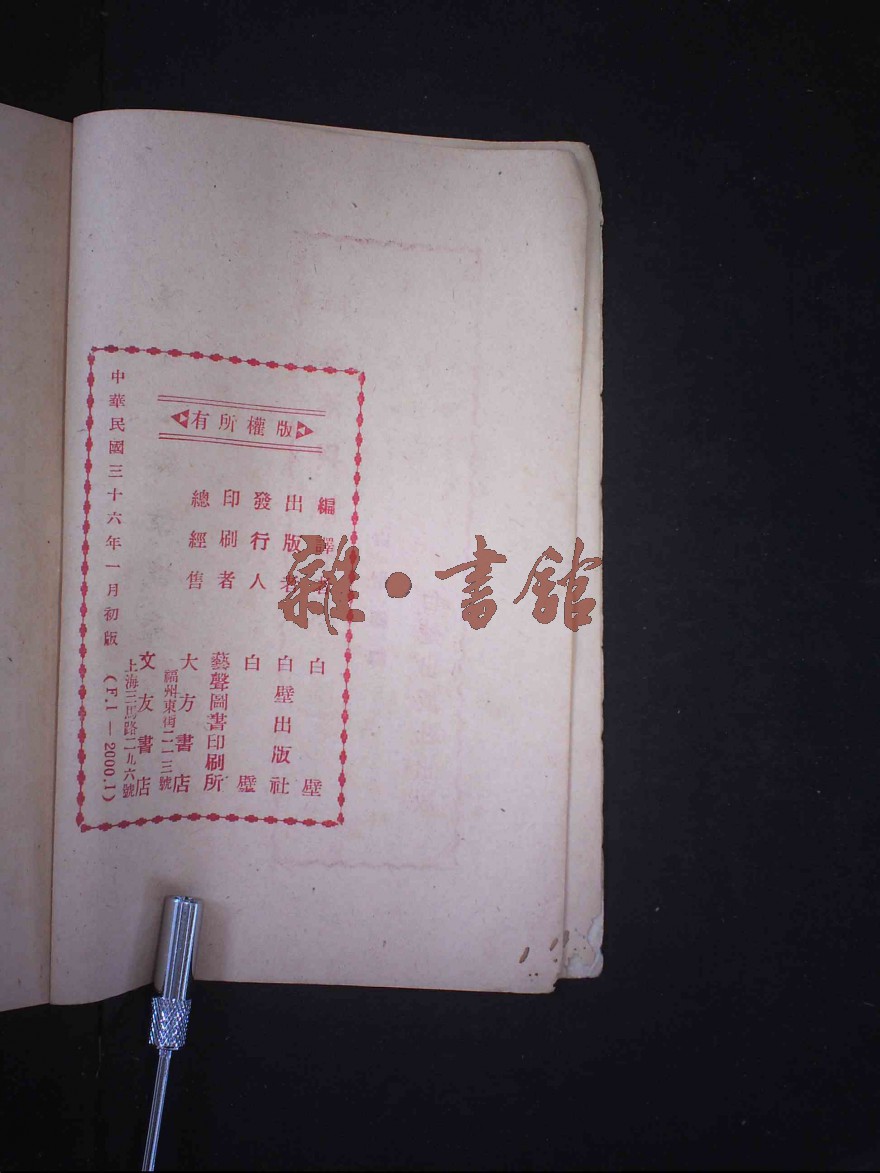 版權所有
編譯者 白璧
出版者 白壁出版社
發行人 白璧
印刷者 藝聲圖書印刷所
總經售 大方書店
福州東街二一三號
文友書店
上海三馬路二九六號
中華民國三十六年一月初版 (F.1—2000.1)
雜·書館